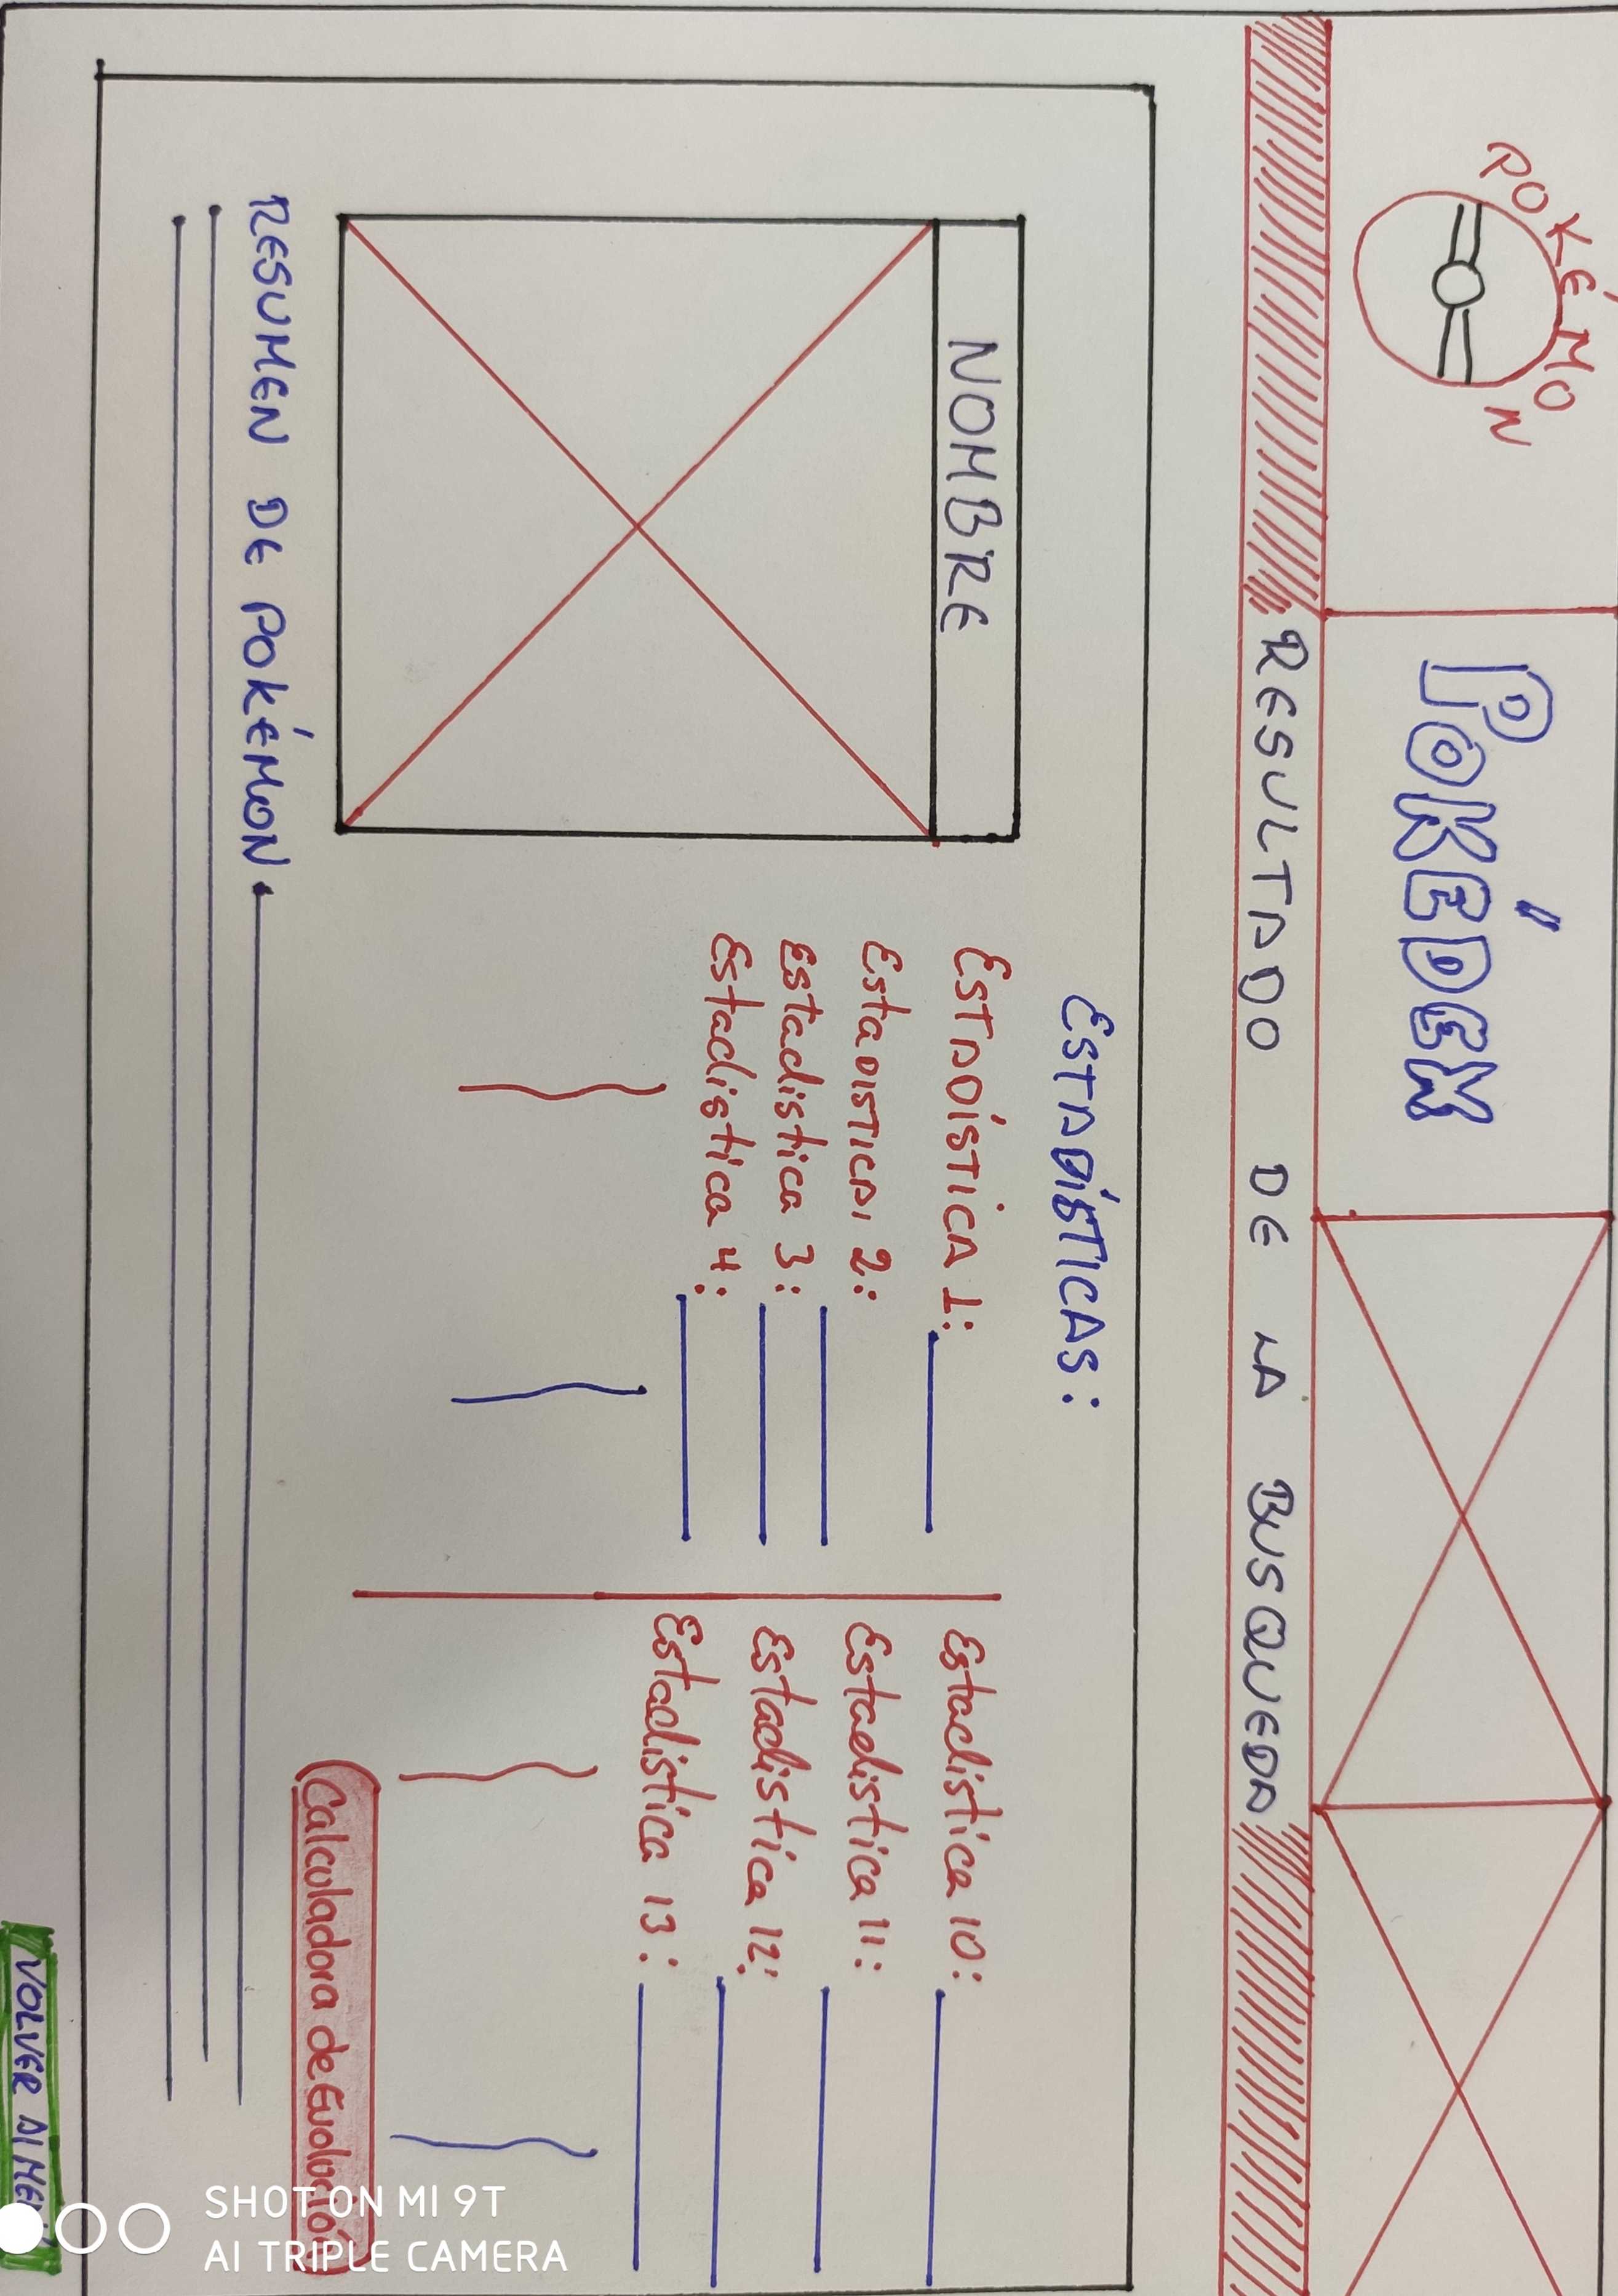 POKÉMON
POKÉDEX
RESULTADO DE LA BUSQUEDA
ESTADÍSTICAS:
NOMBRE
ESTADÍSTICA 1:
ESTADISTICA 2:
Estadistica 3:
Estadistica 4:
Estadistica 10:
Estadistica 11:
Estadistica 12:
Estadistica 13:
Calculadora de Evolución
RESUMEN DE POKÉMON
VOLVER AL MENÚ
SHOT ON MI 9T
AI TRIPLE CAMERA